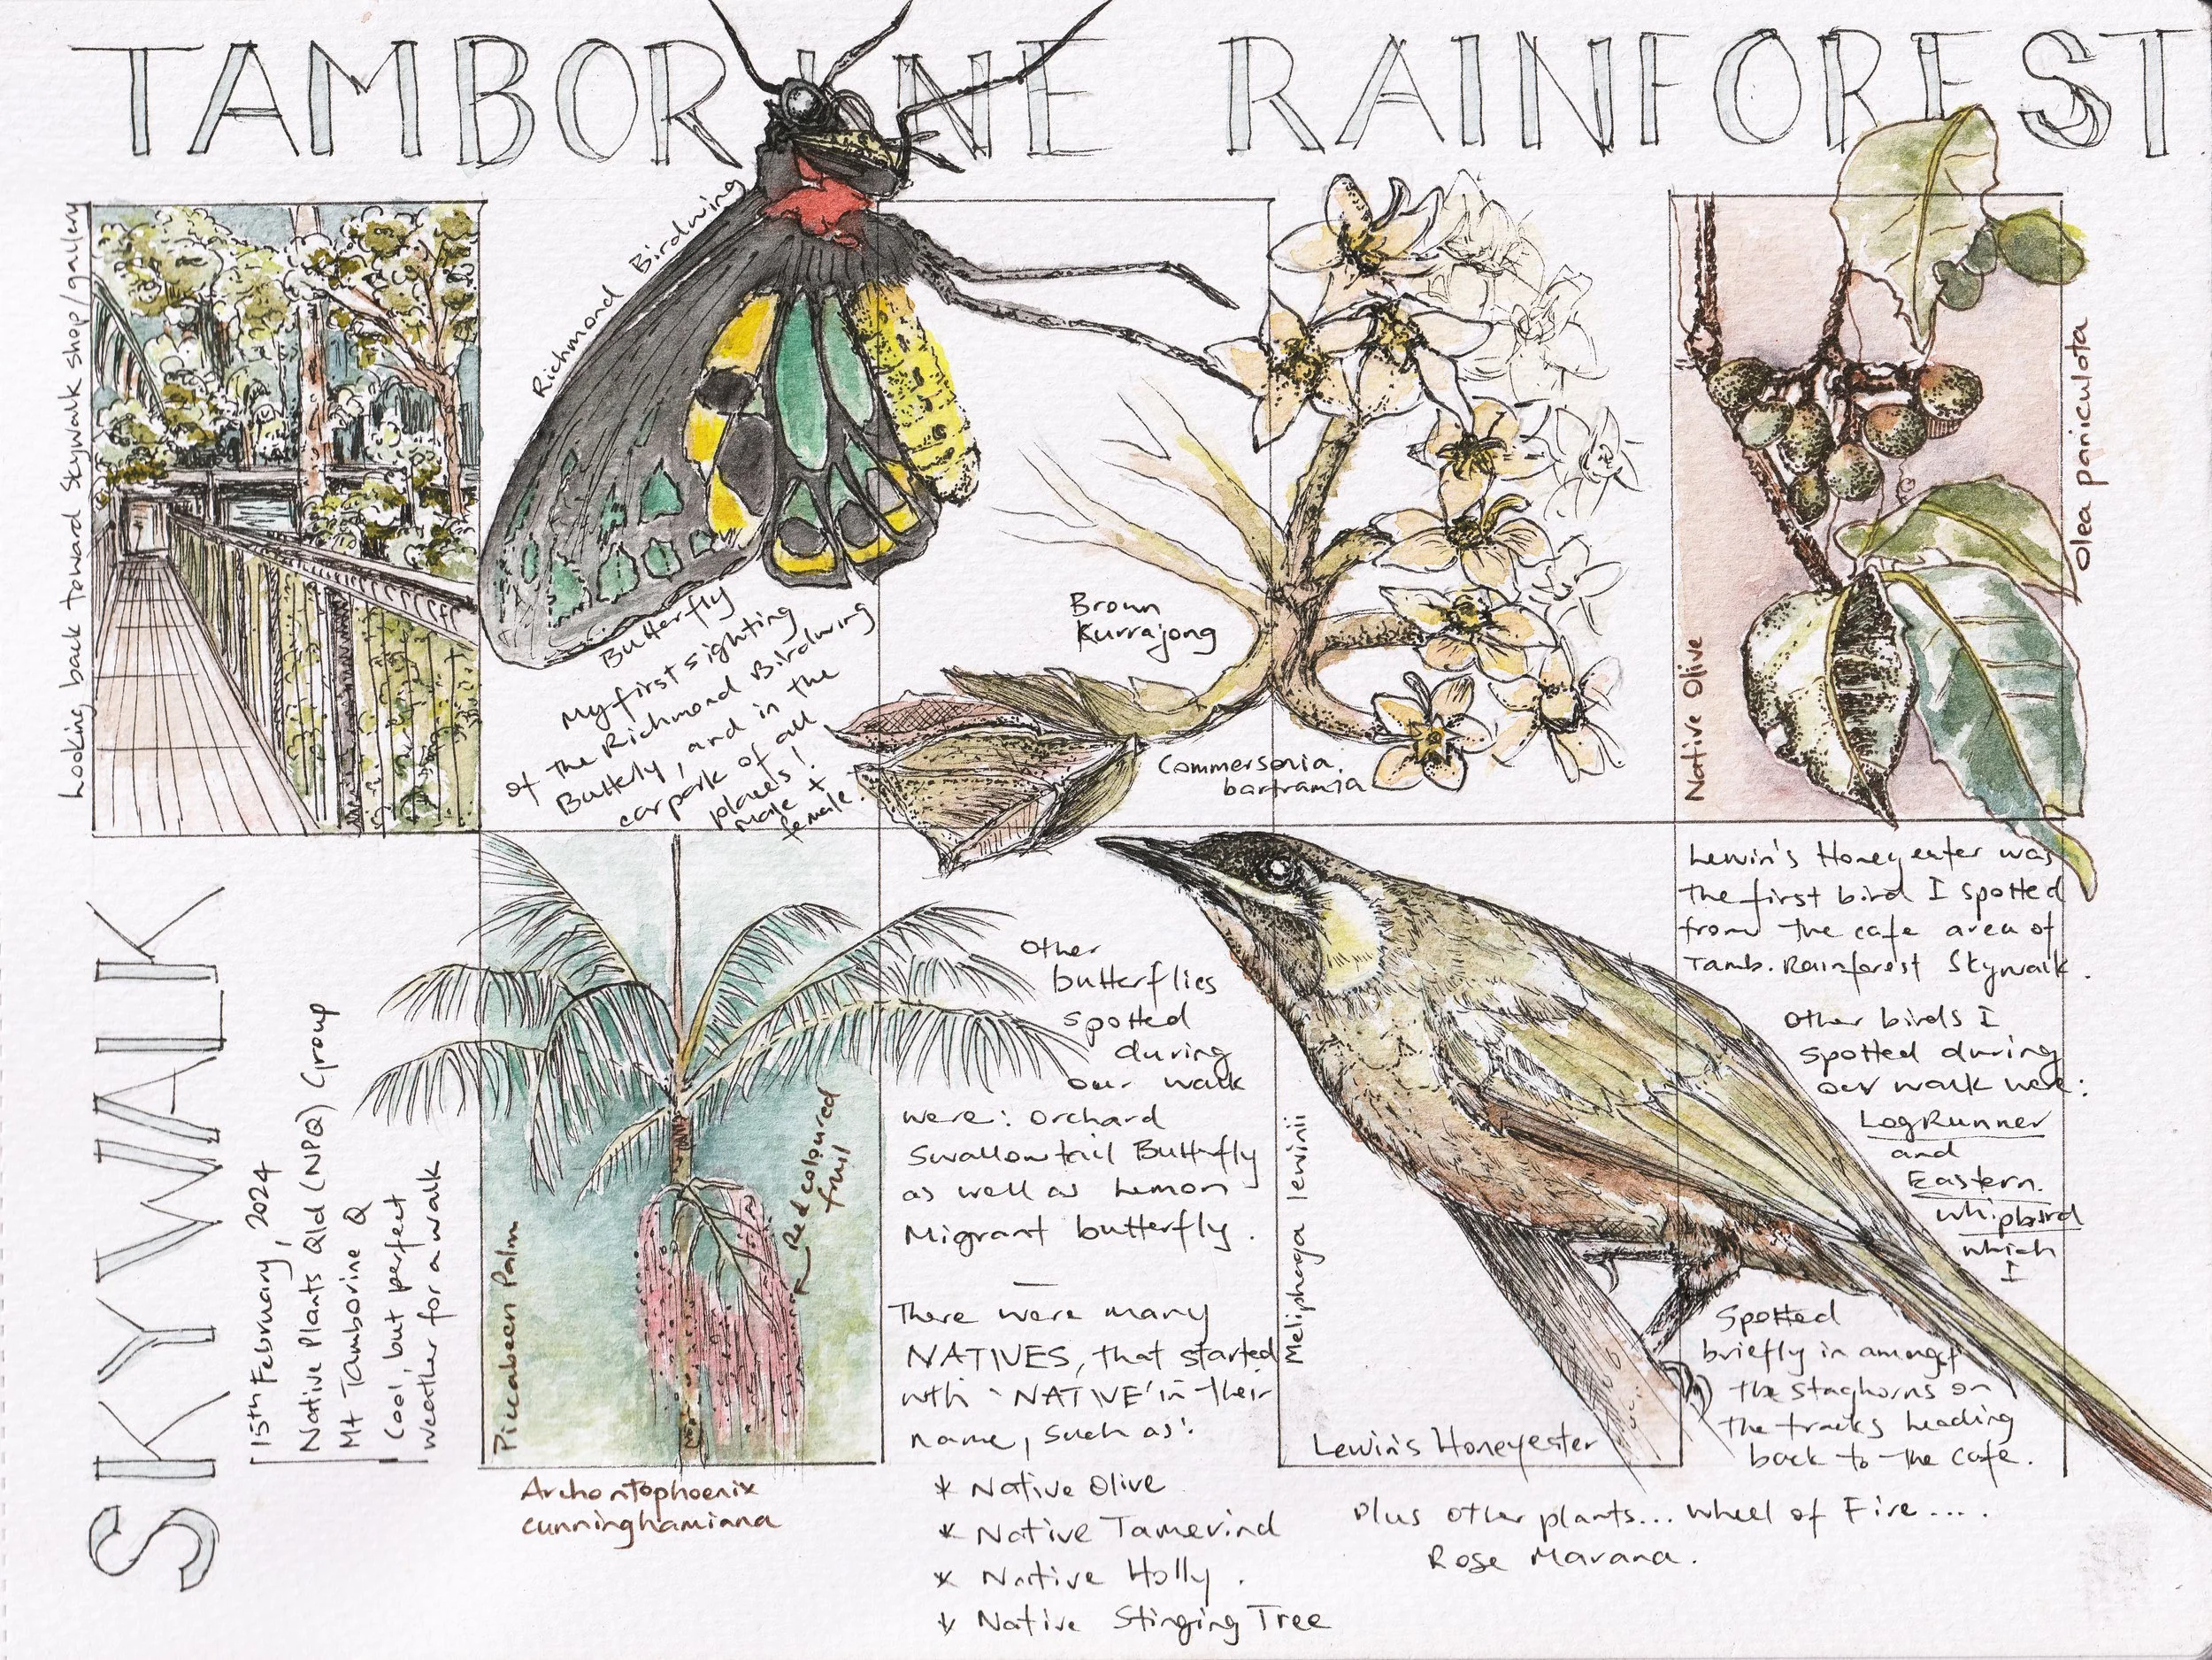 TAMBORINE RAINFOREST
SKYWALK
15th February, 2024
Native Plants Qld (NPQ) Group
Mt Tamborine Q
Cool, but perfect
weather for a walk
Looking back toward Skywalk shop/gallery
Richmond Birdwing
Butterfly
My first sighting
of the Richmond Birdwing
Butterly, and in the
carpark of all
places!
male +
female.
Brown
Kurrajong
Commersonia
bartramia
Native Olive
Olea paniculata
Piccabeen Palm
Red coloured
fruit
Archontophoenix
cunninghamiana
Other
butterflies
spotted
during
our walk
were: Orchard
Swallowtail Butterfly
as well as Lemon
Migrant butterfly.
There were many
NATIVES, that started
with 'NATIVE' in their
name, such as:
* Native Olive
* Native Tamerind
* Native Holly.
* Native Stinging Tree
Meliphaga lewinii
Lewin's Honeyeater
Lewin's Honeyeater was
the first bird I spotted
from the cafe area of
Tamb. Rainforest Skywalk.
Other birds I
spotted during
our walk were:
LogRunner
and
Eastern
whipbird
which
I
spotted
briefly in amongst
the staghorns on
the tracks heading
back to the cafe.
Plus other plants... Wheel of Fire....
Rose Marara.